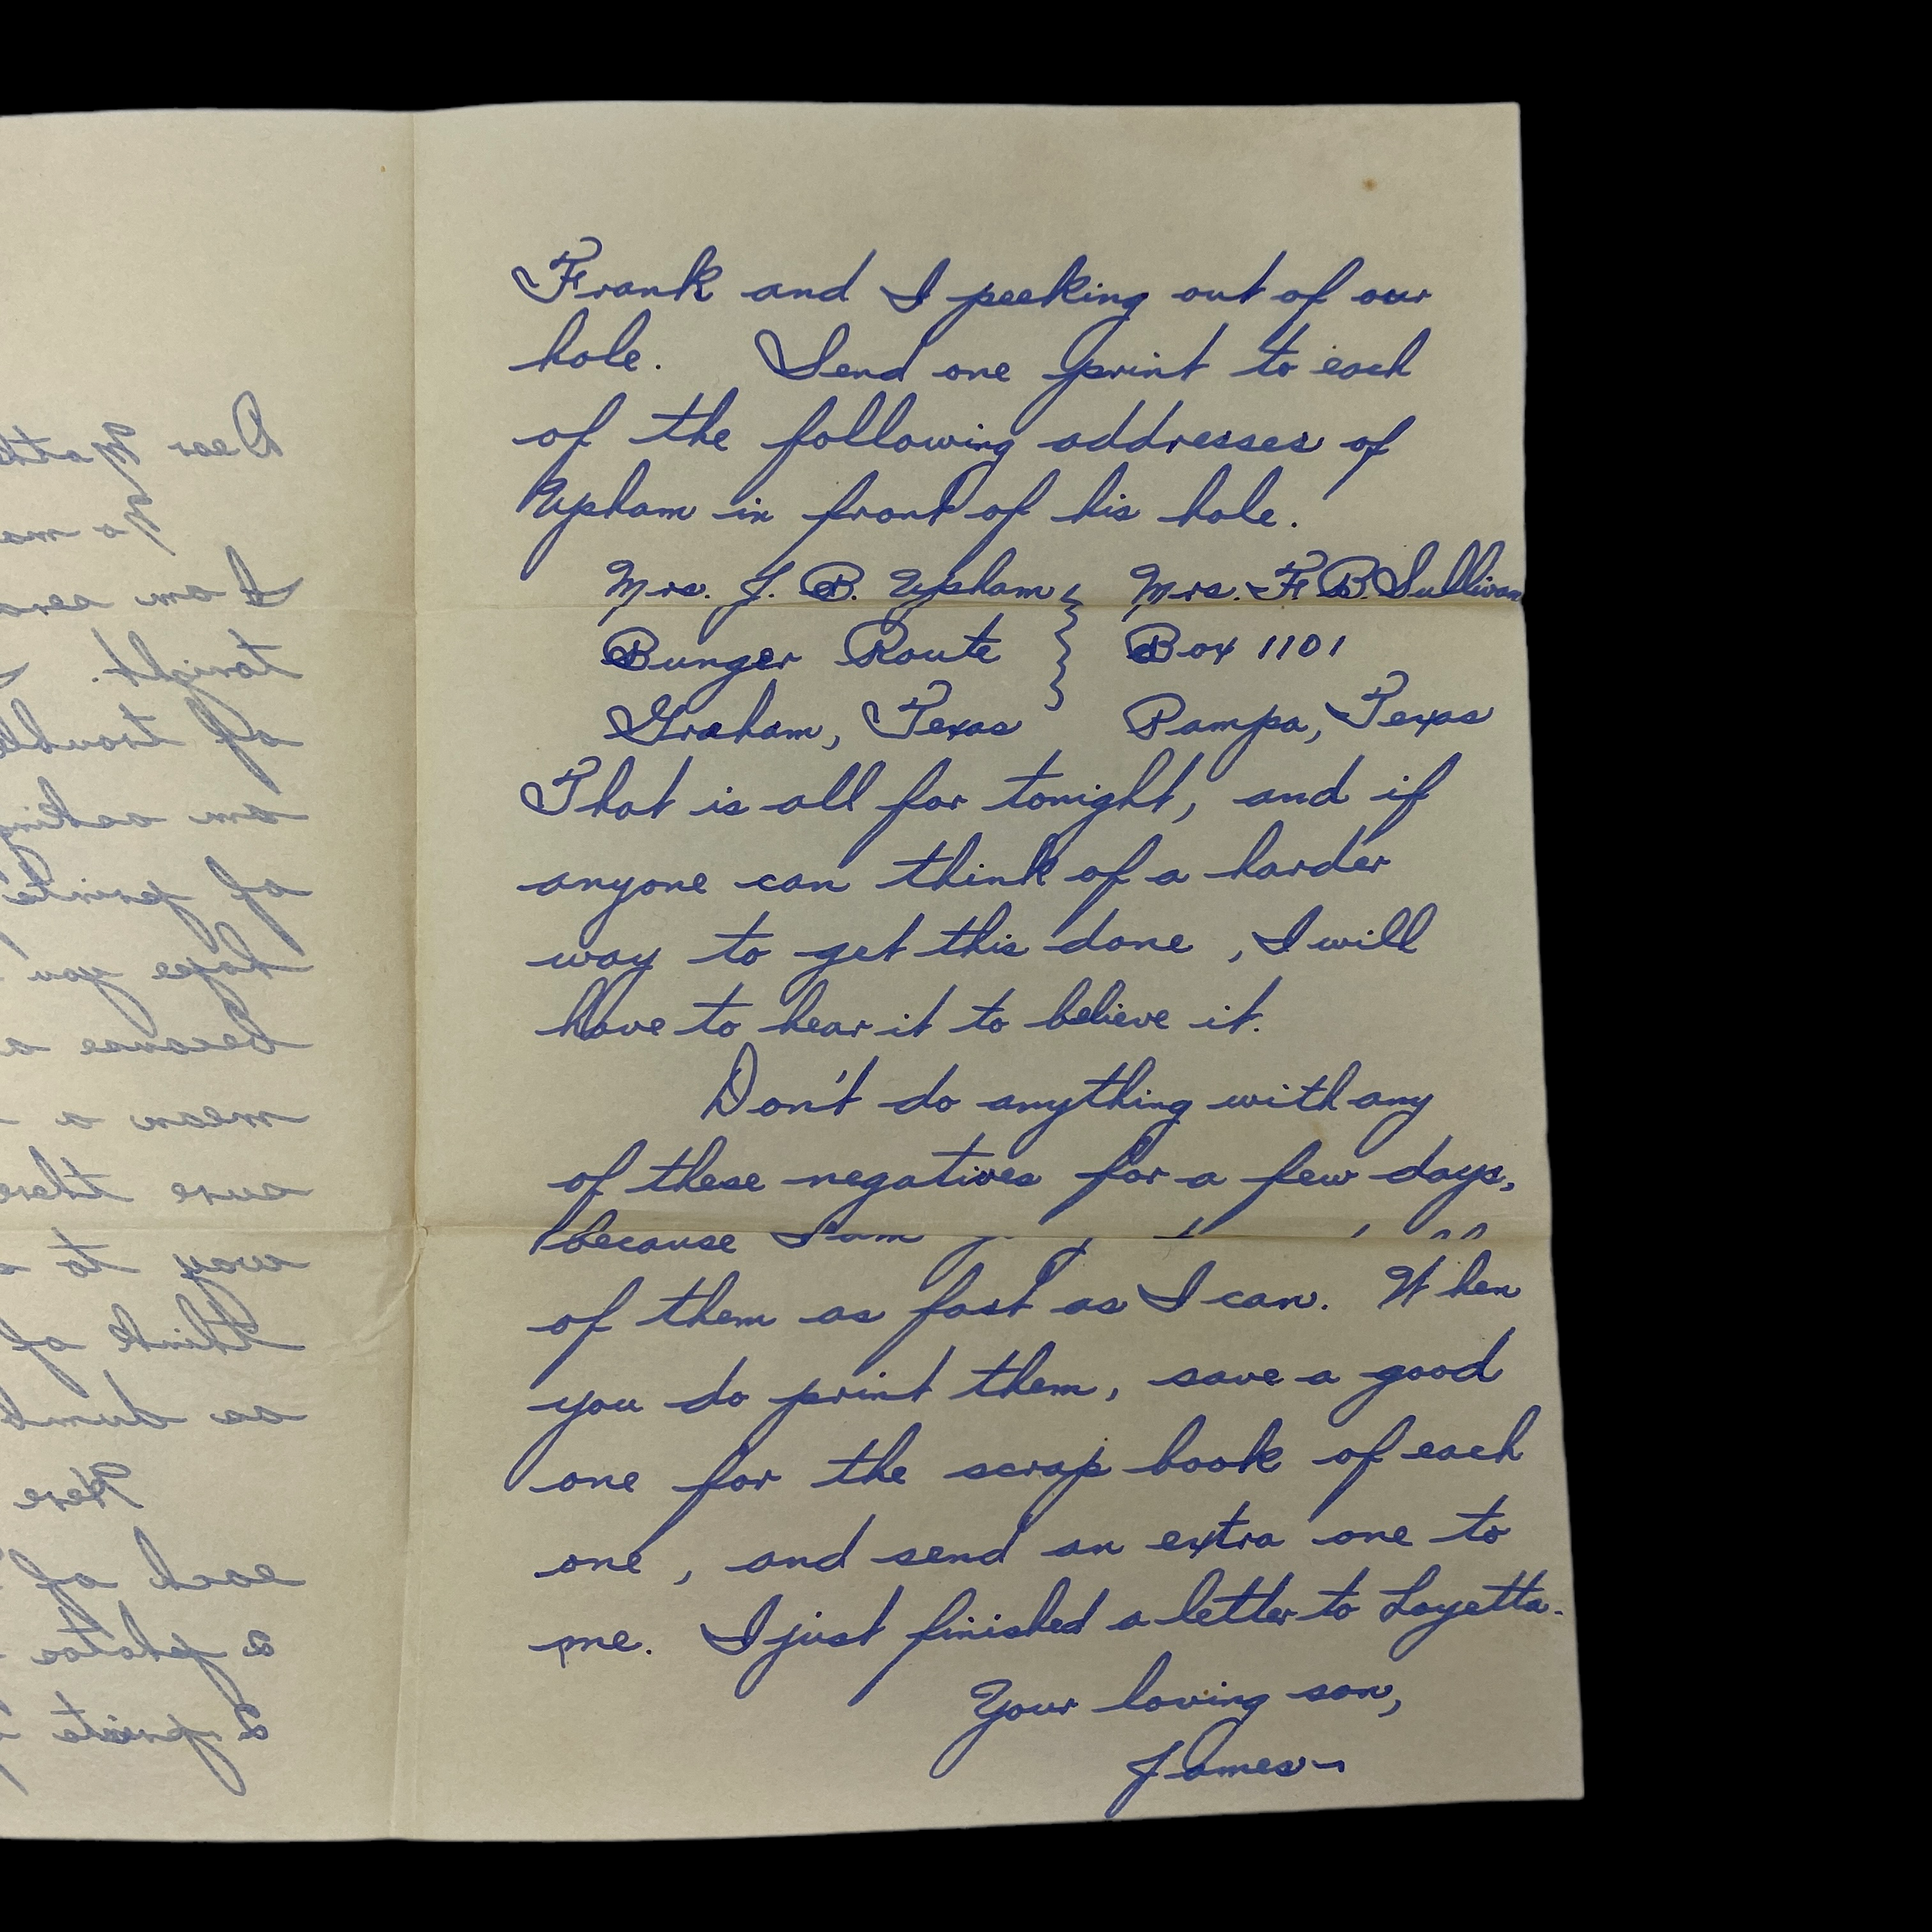 Frank and I peeking out of our
hole. Send one print to each
of the following addresses of
Upham in front of his hole.
Mrs. J. B. Upham } Mrs. F. B. Sullivan
Bunger Route } Box 1101
Graham, Texas Pampa, Texas
That is all for tonight, and if
anyone can think of a harder
way to get this done, I will
have to hear it to believe it.
Don't do anything with any
of these negatives for a few days,
because I am
of them as fast as I can. When
you do print them, save a good
one for the scrap book of each
one, and send an extra one to
me. I just finished a letter to Loyetta.
Your loving son,
James